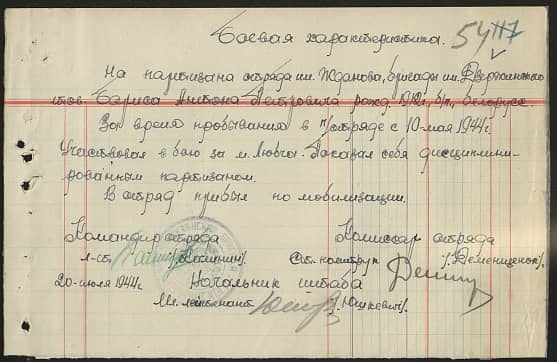 Боевая характеристика. 54 117
На партизана отряда им. Жданова, бригады им. Дзержинского
тов. Бариса Антона Петровича рожд. 1912г., б/п, белорусс.
За время пребывания в п/отряде с 10-мая 1944г.
Участвовал в бою за м. Любча. Показал себя дисциплини-
рованным партизаном.
В отряд прибыл по мобилизации.
Командир отряда Комиссар отряда
л-нт Ст. политрук /Деменщенок/.
20-июля 1944г. Начальник штаба
Мл. лейтенант /Юшкевич/.